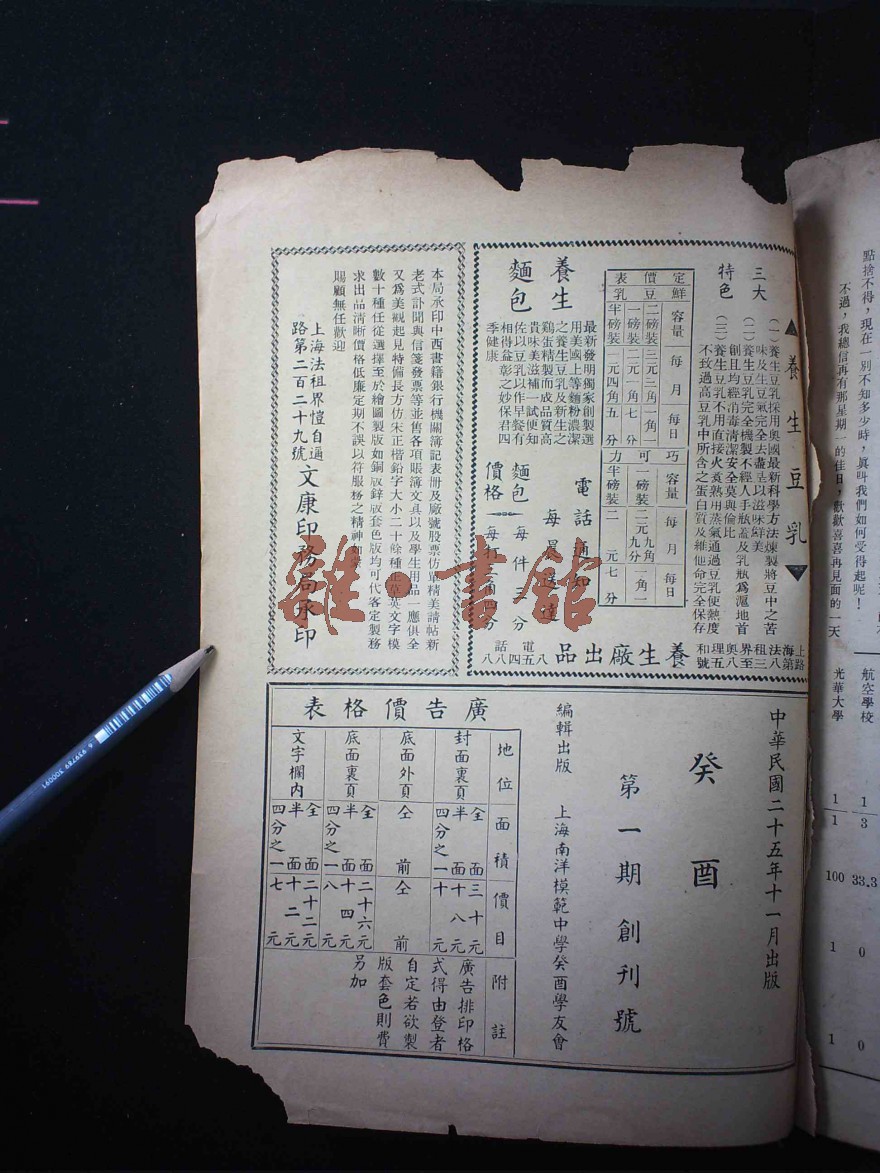 點捨不得，現在一別不知多少時，眞叫我們如何受得起呢！
不過，我總信再有那星期一的佳日，歡歡喜喜再見面的一天
航空學校 1 3 33.3 0 0
光華大學 1 1 100 1 1
▲養生豆乳▼
三大特色
（一）養生豆乳採用奧國最新科學方法煉製將豆中之苦
味及生豆氣完全去盡是以滋味鮮美
（二）養生豆乳完全機製不經人手瓶蓋及乳瓶爲滬地首
創且均經消毒清潔安全莫與倫比
（三）養生豆乳不用直接火煑熟用蒸氣通過豆乳使熱度
不致過高豆乳中所含之蛋白質及維他命完全保存
定價表
鮮豆乳
容量 每月 每日
二磅裝 三元三角 一角一分
一磅裝 二元一角 七分
半磅裝 一元四角 五分
巧可力
容量 每月 每日
一磅裝 二元九角九分 一角一分
半磅裝 二元 七分
養生麵包
最新發明獨家創製選
用美國上等麵粉濃潔
之養生豆乳及新生之
雞蛋精製而成品質高
貴味美滋補一試便知
佐以豆乳以作早餐有
相得益彰之妙保君四
季健康
電話通知
每晨送達
麵包價格
每件三分
每打三角四分
養生廠出品
上海法租界奧理和
路第八三至八五號
電話八五四八八
本局承印中西書籍銀行機關簿記表册及廠號股票仿單精美請帖新
老式訃聞與信箋發票等並售各項賬簿文具以及學生用品一應俱全
又爲美觀起見特備長方仿宋正楷鉛字大小二十餘種正草英文字模
數十種任從選擇至於繪圖製版如銅版鋅版套色版均可代客定製務
求出品清晰價格低廉定期不誤以符服務之精神如蒙
賜顧無任歡迎
上海法租界愷自邇
路第二百二十九號
文康印務局承印
中華民國二十五年十一月出版
癸酉
第一期創刊號
編輯出版 上海南洋模範中學癸酉學友會
廣告價格表
地位 面積 價目 附註
封面裏頁 全面 三十元
半面 十八元
四分之一 十元
底面外頁 仝前 仝前
底面裏頁 全面 二十六元
半面 十四元
四分之一 八元
文字欄內 全面 二十二元
半面 十二元
四分之一 七元
廣告排印格
式得由登者
自定若欲製
版套色則費
另加
雜·書館